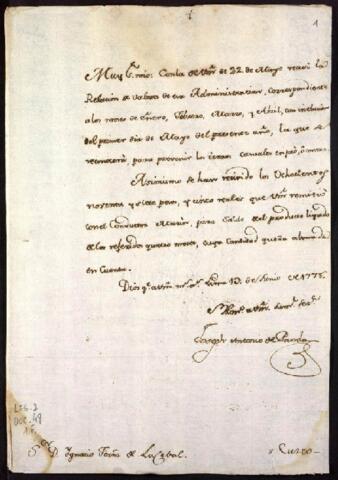 1
Muy S.r mio: Con la de Vm de 22 de Mayo recivi la
Relacion de valores de esa Administracion, correspondiente
a los meses de Enero, Febrero, Marzo, y Abril, con inclusion
del primer dia de Mayo del presente año, la que se
reconocerá, para prevenir lo
Asimismo he recivido los Ochocientos
noventa y siete pesos, y cinco reales que Vm remite
con el Conductor para saldo del producto liquido
de los referidos quatro meses, cuya cantidad queda abonada
en Cuenta.
Dios gue a Vm m.s a.s Lima 13 de Junio de 1775
Joseph Antonio de Pando
LEG-2
DOC-49
S.or D. Ignacio de
Cuzco